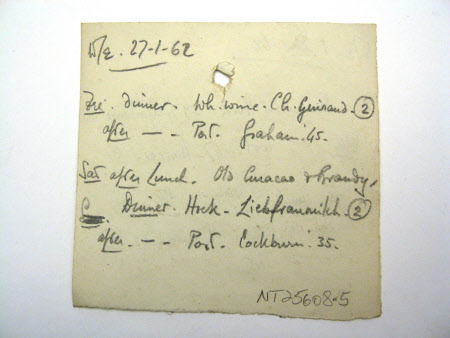 W/E. 27-1-62
Fri. dinner. Wh. wine. Ch. Guiraud. 2
after — - Port. Graham. 45.
Sat after Lunch. Old Curacao & Brandy,
Dinner. Hock. Liebfraumilch. 2
after. - — Port. Cockburn. 35.
NT25608-5